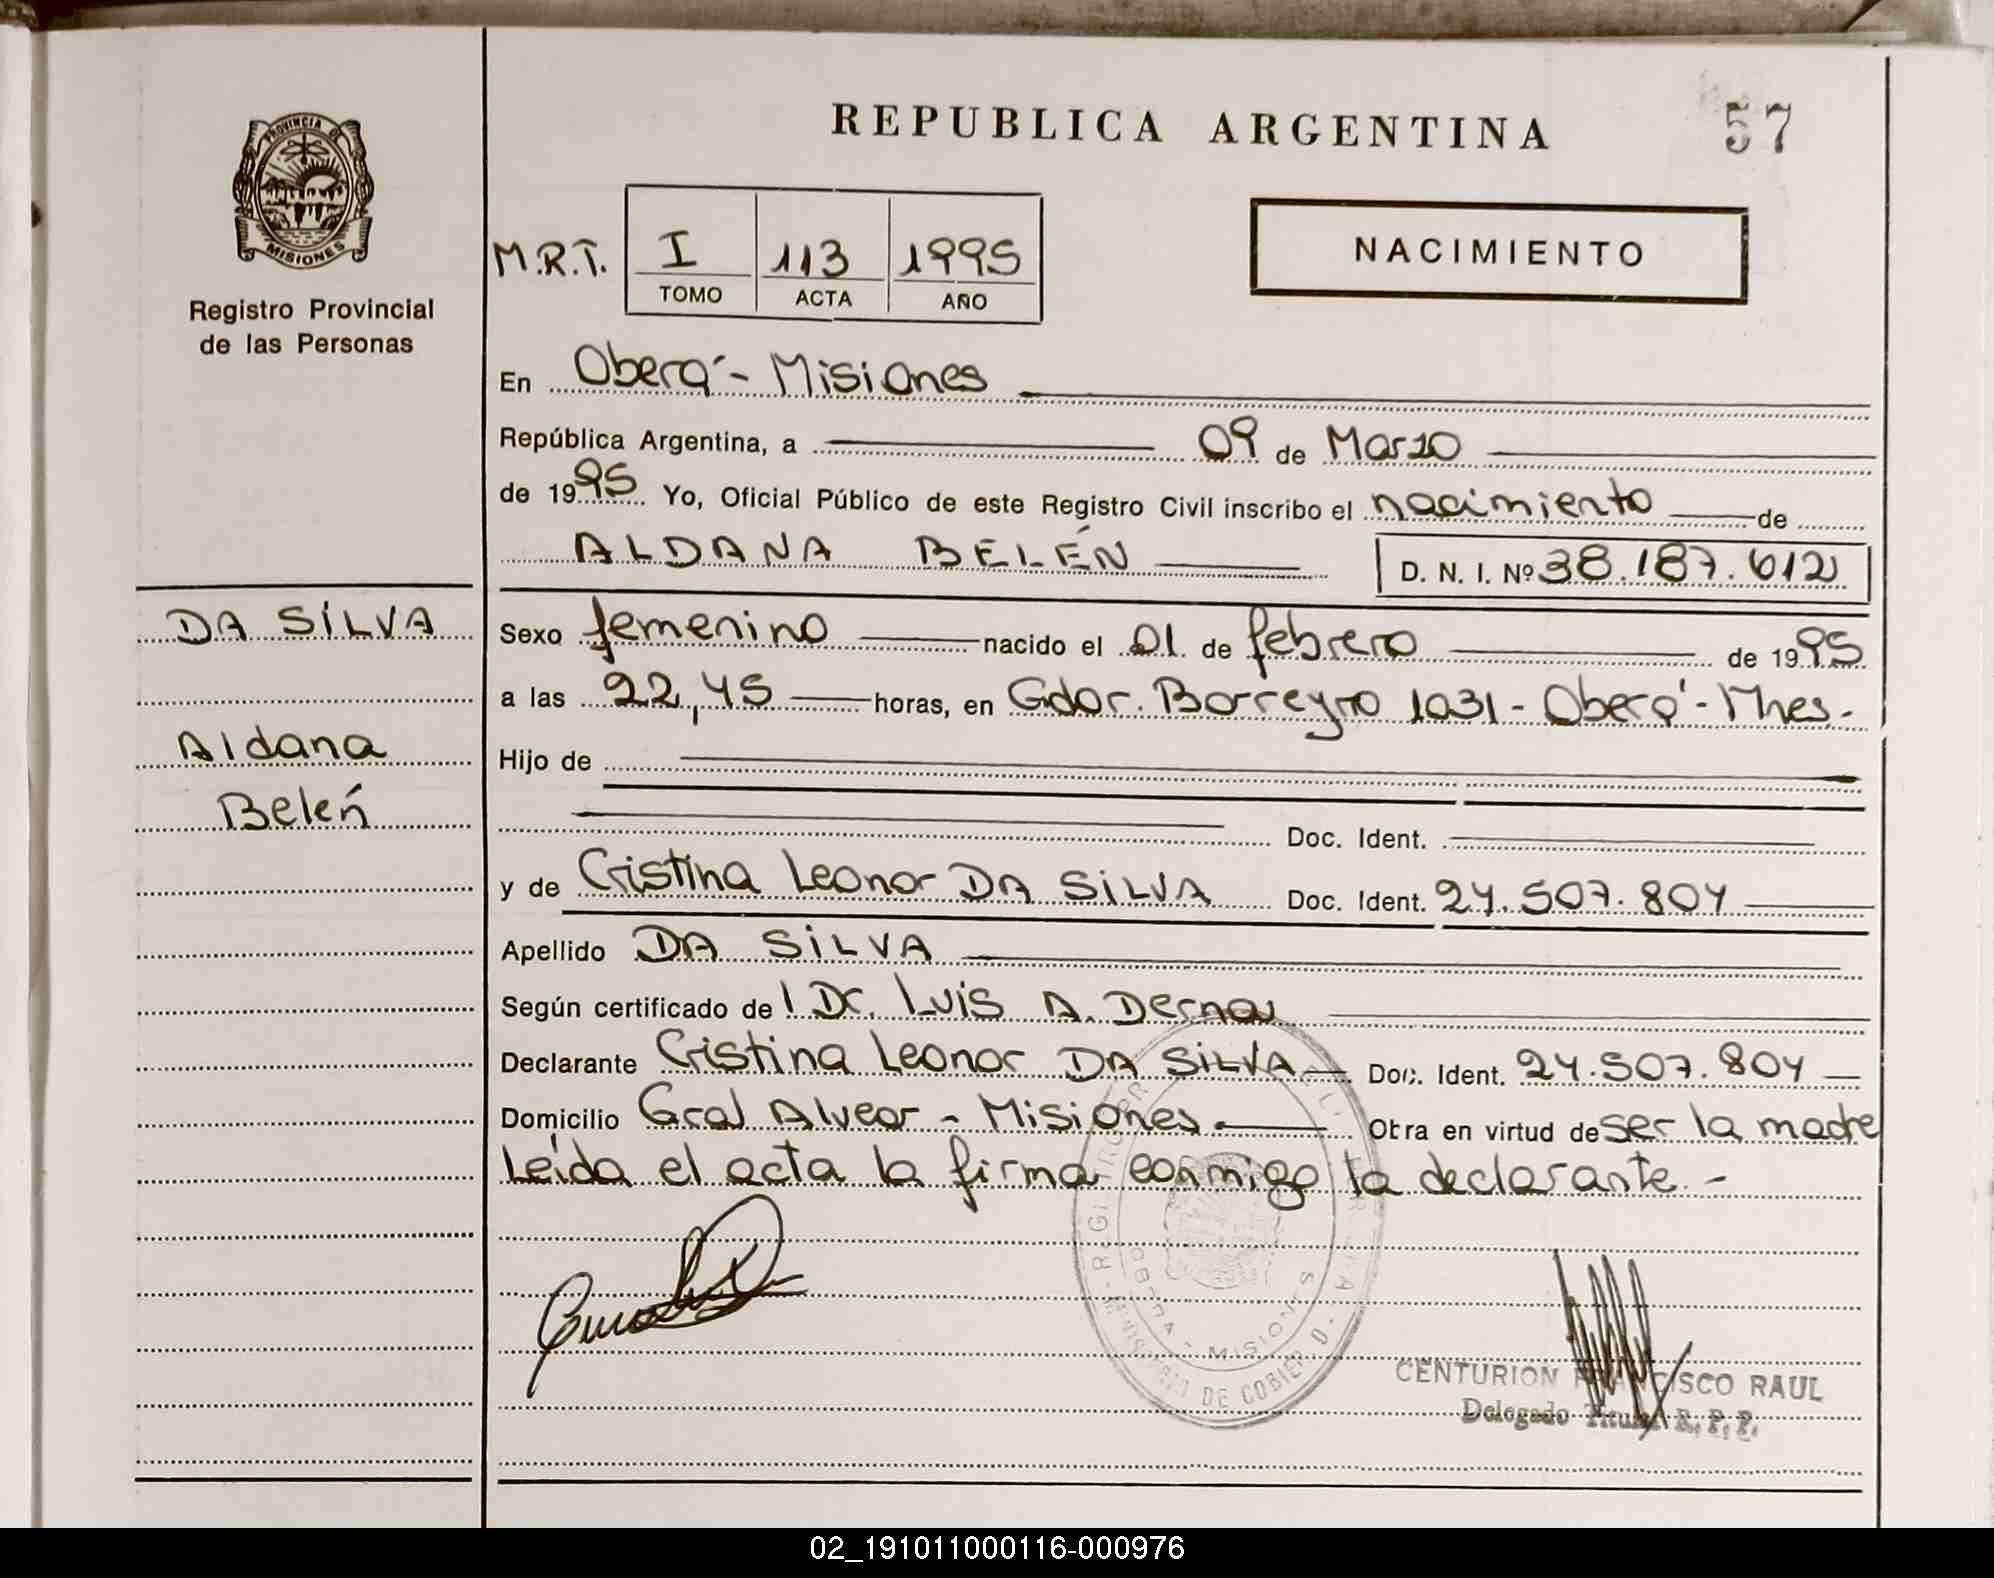 REPUBLICA ARGENTINA
57
PROVINCIA DE
MISIONES
Registro Provincial
de las Personas
M.R.T. I 113 1995
TOMO ACTA AÑO
NACIMIENTO
En Oberá - Misiones
República Argentina, a 09 de Marzo
de 1995 Yo, Oficial Público de este Registro Civil inscribo el nacimiento de
ALDANA BELÉN D. N. I. Nº 38.187.612
DA SILVA
Aldana
Belén
Sexo femenino nacido el 01 de febrero de 1995
a las 22,45 horas, en Gdor. Barreyro 1031 - Oberá - Mnes.
Hijo de
Doc. Ident.
y de Cristina Leonor DA SILVA Doc. Ident. 24.507.804
Apellido DA SILVA
Según certificado de l Dr. Luis A. Derna
Declarante Cristina Leonor DA SILVA Doc. Ident. 24.507.804
Domicilio Gral Alvear - Misiones Obra en virtud de ser la madre
Leída el acta la firma conmigo la declarante. -
OBERA - MISIONES
CENTURION FRANCISCO RAUL
Delegado Titular R. P. P.
02_191011000116-000976